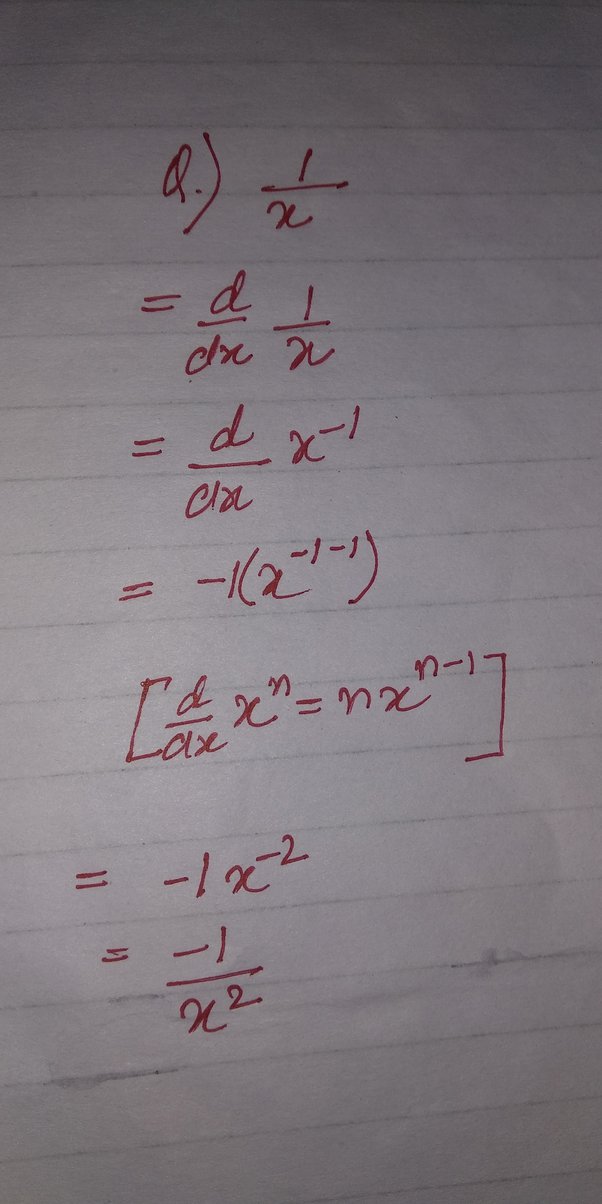 Q.) 1/x
= d/dx 1/x
= d/dx x⁻¹
= -1(x⁻¹⁻¹)
[d/dx xⁿ = nxⁿ⁻¹]
= -1x⁻²
= -1/x²